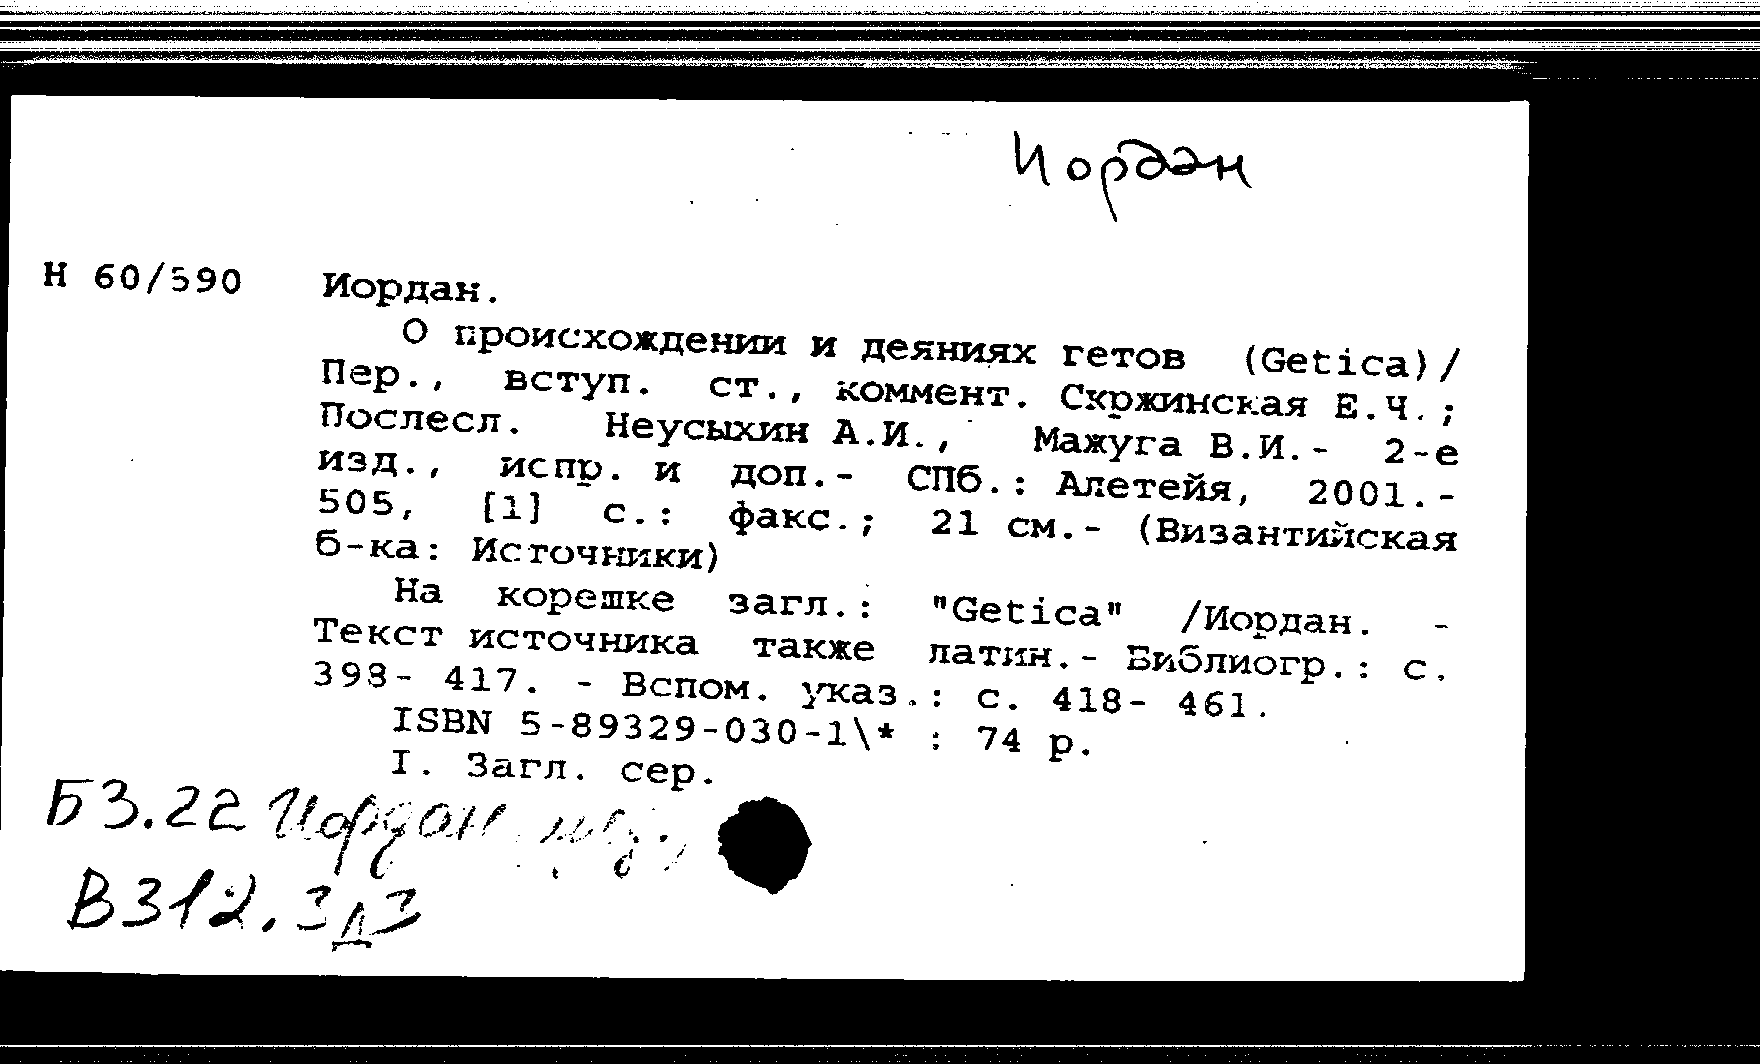 Иордан
Н 60/590 Иордан.
О происхождении и деяниях гетов (Getica)/
Пер., вступ. ст., коммент. Скржинская Е.Ч.;
Послесл. Неусыхин А.И., Мажуга В.И.- 2-е
изд., испр. и доп.- СПб.: Алетейя, 2001.-
505, [1] с.: факс.; 21 см.- (Византийская
б-ка: Источники)
На корешке загл.: "Getica" /Иордан. -
Текст источника также латин.- Библиогр.: с.
398- 417. - Вспом. указ.: с. 418- 461.
ISBN 5-89329-030-1\* : 74 р.
I. Загл. сер.
Б3.22 Иордан
В312.3д3